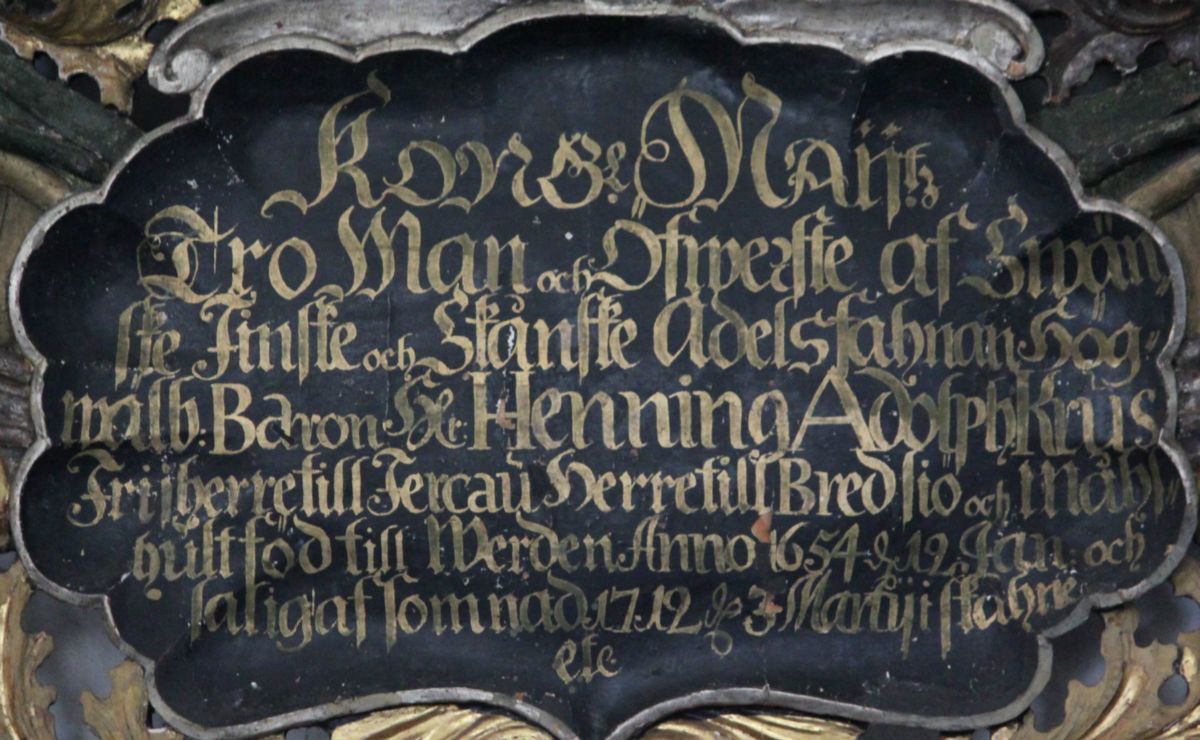 Kongl. Maijtz
Tro Man och Öfwerste af Swän
ske Finske och Skånske Adelsfahnan Hög-
wälb: Baron Hr: Henning Adolph Krus
Friherre till Jercau Herre till Bredsiö och Måhl
hult föd till Werden Anno 1654 d 12 Jan: och
salig afsomnad 1712 d 3 Martij i skåhne
etc